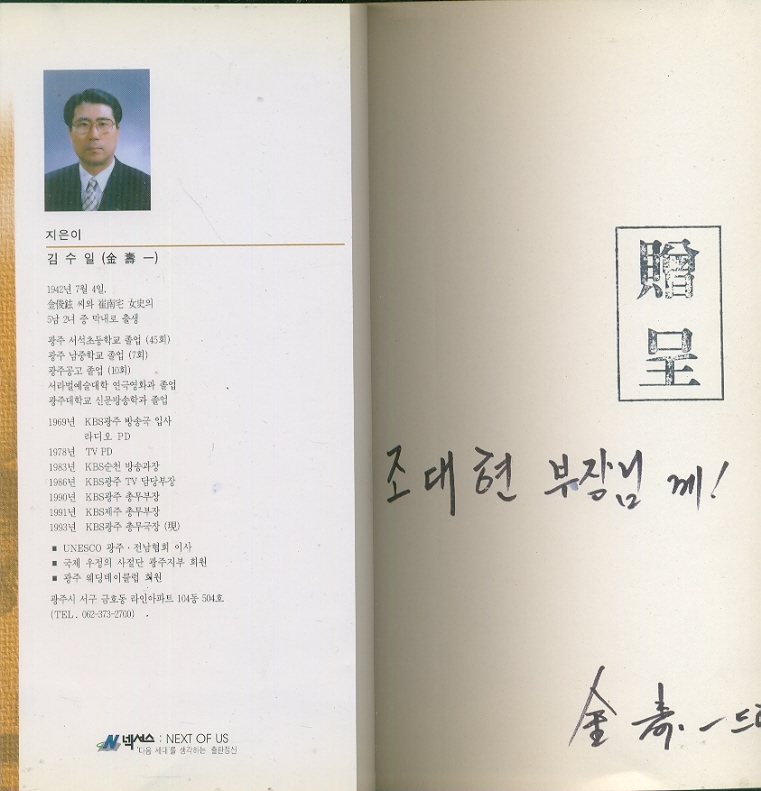 지은이
김 수 일 (金 壽 一)
1942년 7월 4일,
金俊鉉 씨와 崔南宅 女史의
5남 2녀 중 막내로 출생
광주 서석초등학교 졸업 (45회)
광주 남중학교 졸업 (7회)
광주공고 졸업 (10회)
서라벌예술대학 연극영화과 졸업
광주대학교 신문방송학과 졸업
1969년 KBS광주 방송국 입사
라디오 PD
1978년 TV PD
1983년 KBS순천 방송과장
1986년 KBS광주 TV 담당부장
1990년 KBS광주 총무부장
1991년 KBS제주 총무부장
1993년 KBS광주 총무국장 (現)
■ UNESCO 광주·전남협회 이사
■ 국제 우정의 사절단 광주지부 회원
■ 광주 웨딩데이클럽 회원
광주시 서구 금호동 라인아파트 104동 504호
(TEL. 062-373-2700)
넥서스 : NEXT OF US
'다음 세대'를 생각하는 출판정신
贈
呈
조대현 부장님 께!
金 壽 一 드